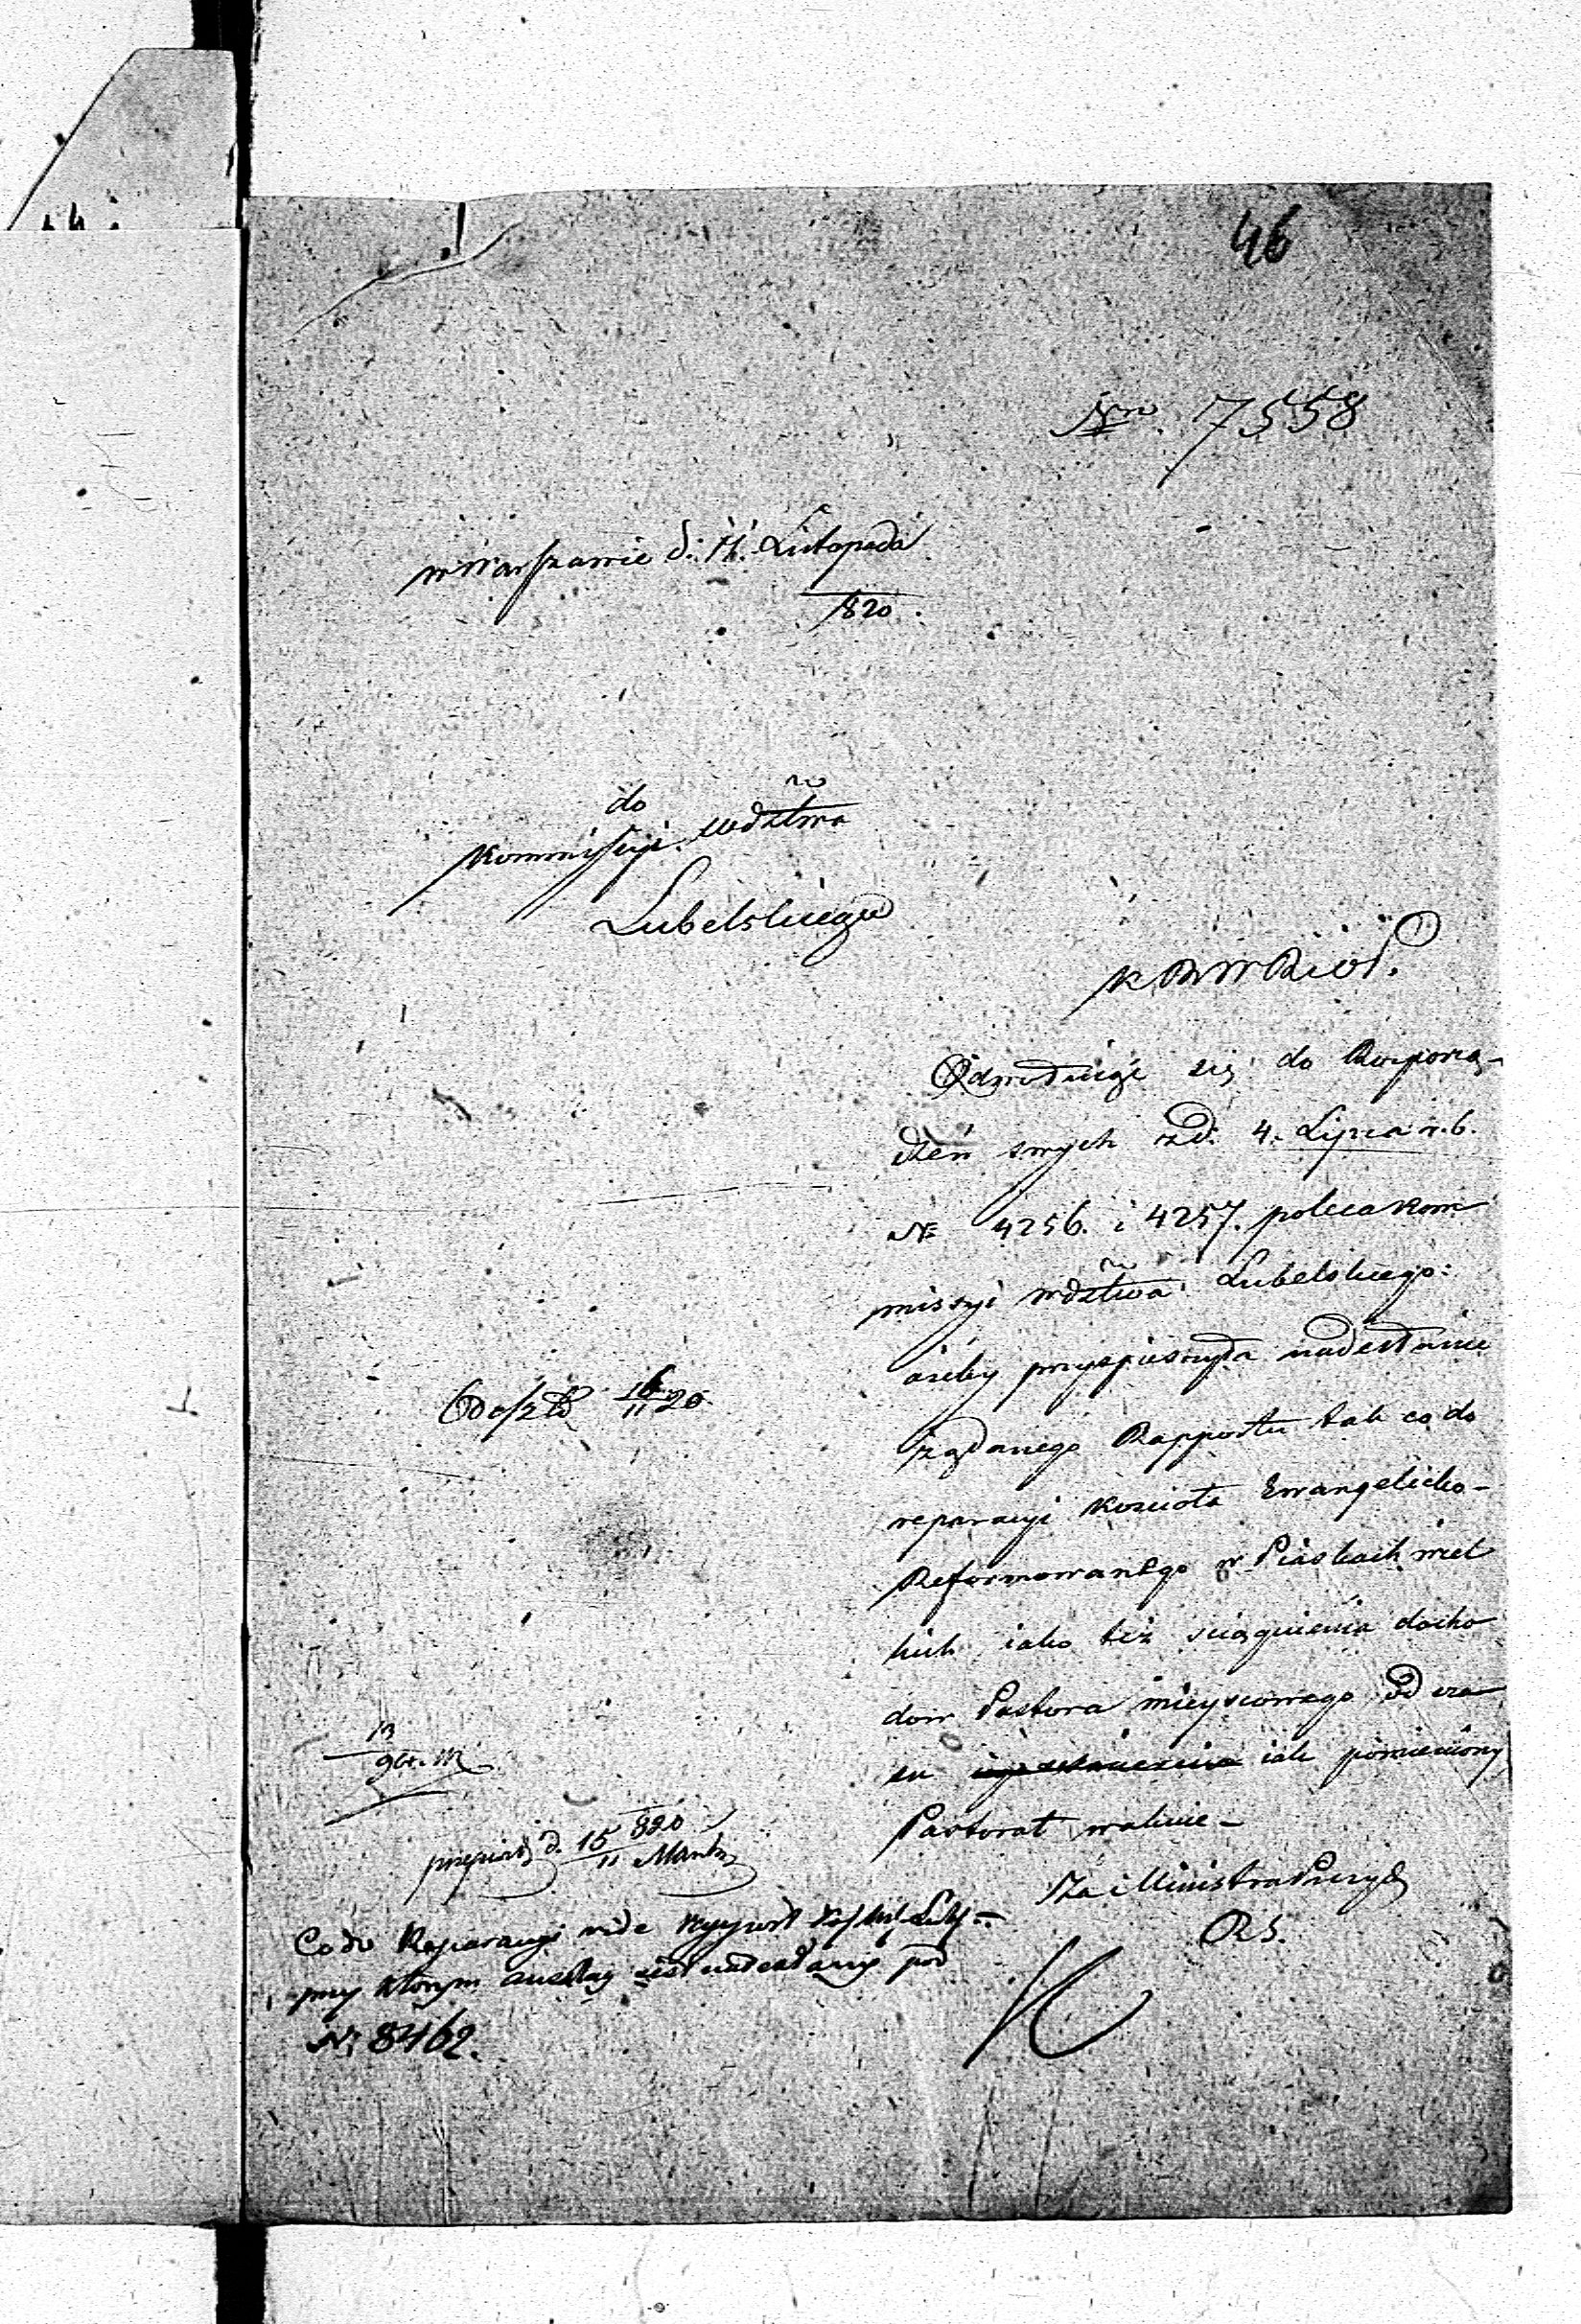 46
Nro. 7558
w Warszawie d: 11. Listopada
1820.
do
Kommissyi Wdztwa
Lubelskiego
K R W R i O P.
Odwołuiąc się do Rozporzą-
dzeń swych z d: 4. Lipca r. b.
No 4256. i 4257. poleca Kom
missyi Wdztwa Lubelskiego:
ażeby przyspieszyła nadesłanie
żądanego Rapportu tak co do
reparacyi Kościoła Ewangelicko-
Reformowanego w Piaskach wiel
kich iako też ściągnienia docho
dow Pastora mieyscowego od cza
su iak pomieniony
Pastorat wakuie -
Za Ministra Prezyd
RS.
Doszło 16/11 20.
przepisał d. 15/11 820
Co do Reparacyi vide
przy którym anszlag iest nadesłany pod
No 8462.